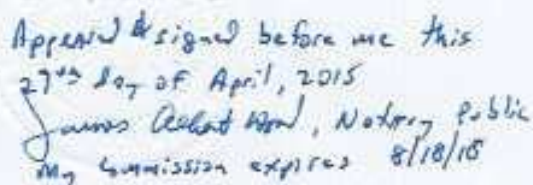 Appeared & signed before me this
27th day of April, 2015
James Albert, Notary Public
My commission expires 8/18/18